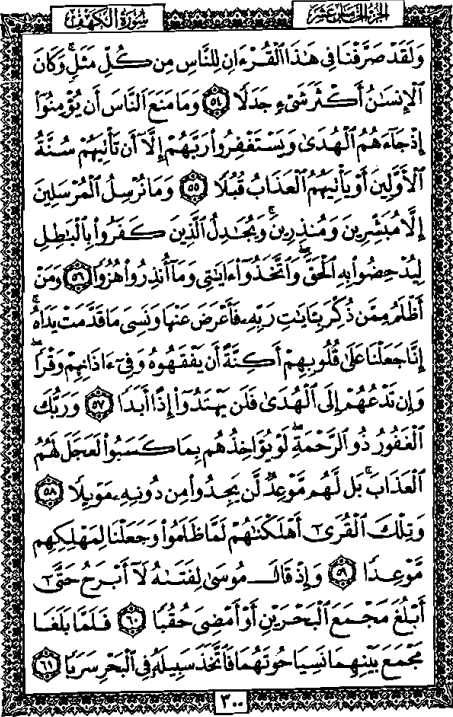 سُورَةُ الكَهْفِ
الجُزْءُ الخَامِسَ عَشَرَ
وَلَقَدْ صَرَّفْنَا فِي هَٰذَا الْقُرْءَانِ لِلنَّاسِ مِن كُلِّ مَثَلٍ ۚ وَكَانَ
الْإِنسَٰنُ أَكْثَرَ شَيْءٍ جَدَلًا ٥٤ وَمَا مَنَعَ النَّاسَ أَن يُؤْمِنُوٓا۟
إِذْ جَآءَهُمُ الْهُدَىٰ وَيَسْتَغْفِرُوا۟ رَبَّهُمْ إِلَّآ أَن تَأْتِيَهُمْ سُنَّةُ
الْأَوَّلِينَ أَوْ يَأْتِيَهُمُ الْعَذَابُ قُبُلًا ٥٥ وَمَا نُرْسِلُ الْمُرْسَلِينَ
إِلَّا مُبَشِّرِينَ وَمُنذِرِينَ ۚ وَيُجَٰدِلُ الَّذِينَ كَفَرُوا۟ بِالْبَٰطِلِ
لِيُدْحِضُوا۟ بِهِ الْحَقَّ ۖ وَاتَّخَذُوٓا۟ ءَايَٰتِي وَمَآ أُنذِرُوا۟ هُزُوًا ٥٦ وَمَنْ
أَظْلَمُ مِمَّن ذُكِّرَ بِـَٔايَٰتِ رَبِّهِۦ فَأَعْرَضَ عَنْهَا وَنَسِيَ مَا قَدَّمَتْ يَدَاهُ ۚ
إِنَّا جَعَلْنَا عَلَىٰ قُلُوبِهِمْ أَكِنَّةً أَن يَفْقَهُوهُ وَفِيٓ ءَاذَانِهِمْ وَقْرًا ۖ
وَإِن تَدْعُهُمْ إِلَى الْهُدَىٰ فَلَن يَهْتَدُوٓا۟ إِذًا أَبَدًا ٥٧ وَرَبُّكَ
الْغَفُورُ ذُو الرَّحْمَةِ ۖ لَوْ يُؤَاخِذُهُم بِمَا كَسَبُوا۟ لَعَجَّلَ لَهُمُ
الْعَذَابَ ۚ بَل لَّهُم مَّوْعِدٌ لَّن يَجِدُوا۟ مِن دُونِهِۦ مَوْئِلًا ٥٨
وَتِلْكَ الْقُرَىٰٓ أَهْلَكْنَٰهُمْ لَمَّا ظَلَمُوا۟ وَجَعَلْنَا لِمَهْلِكِهِم
مَّوْعِدًا ٥٩ وَإِذْ قَالَ مُوسَىٰ لِفَتَىٰهُ لَآ أَبْرَحُ حَتَّىٰٓ
أَبْلُغَ مَجْمَعَ الْبَحْرَيْنِ أَوْ أَمْضِيَ حُقُبًا ٦٠ فَلَمَّا بَلَغَا
مَجْمَعَ بَيْنِهِمَا نَسِيَا حُوتَهُمَا فَاتَّخَذَ سَبِيلَهُۥ فِي الْبَحْرِ سَرَبًا ٦١
٣٠٠